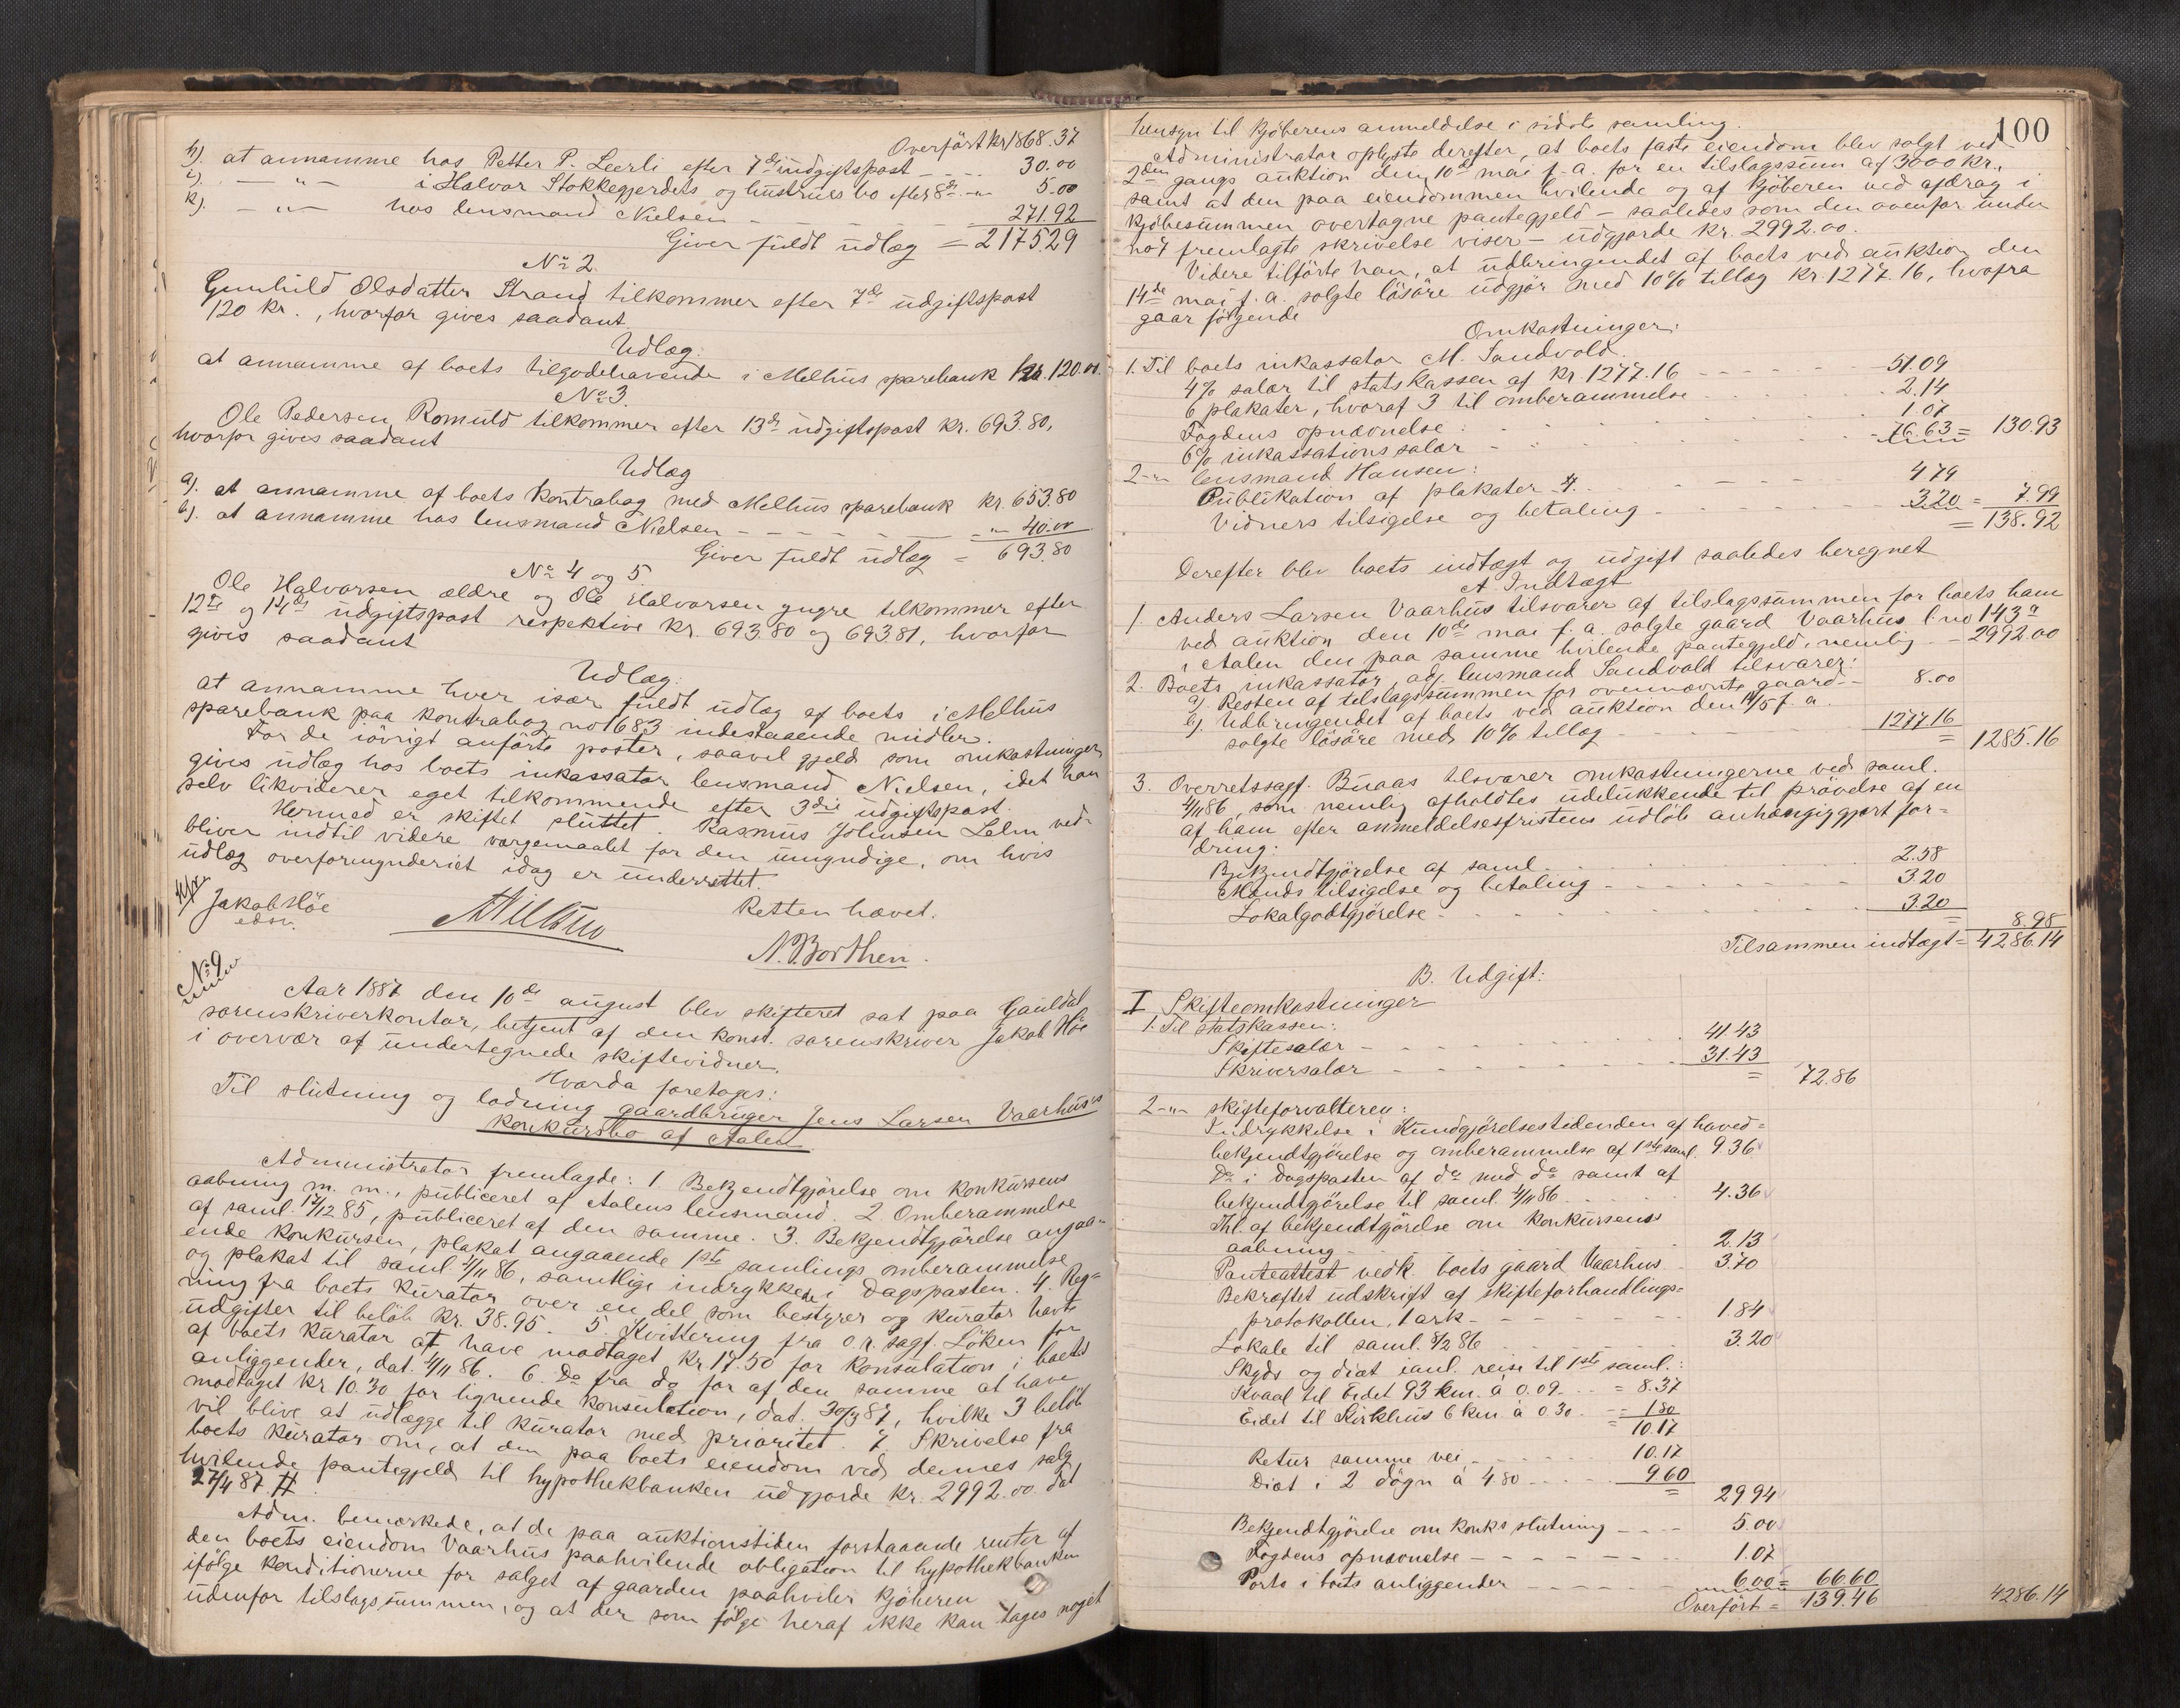 Overført kr 1868.37
h). at annamme hos Petter P. Leerli efter 7de udgiftspost - - - 30.00
i). - " - i Halvor Stokkegjerdets og hustrues bo efter 8de - " - 5.00
k). - " - hos lensmand Nielsen - - - - - 271.92
Giver fuldt udlæg = 2175.29
No 2.
Gunhild Olsdatter Strand tilkommer efter 7de udgiftspost
120 kr., hvorfor gives saadant
Udlæg:
at annamme af boets tilgodehavende i Melhus sparebank kr. 120.00.
No 3.
Ole Pedersen Romuld tilkommer efter 13de udgiftspost kr. 693.80,
hvorfor gives saadant
Udlæg
a). at annamme af boets kontrabog med Melhus sparebank kr. 653.80
b). at annamme hos lensmand Nielsen - - - - - - " - 40.00
Giver fuldt udlæg = 693.80
No 4 og 5
Ole Halvorsen ældre og Ole Halvorsen yngre tilkommer efter
12te og 14de udgiftspost respektive kr. 693.80 og 693.81, hvorfor
gives saadant
Udlæg:
at annamme hver især fuldt udlæg af boets i Melhus
sparebank paa kontrabog no 1683 indestaaende midler.
For de iøvrigt anførte poster, saavel gjeld som omkostninger
gives udlæg hos boets inkassator lensmand Nielsen, idet han
selv likviderer eget tilkommende efter 3die udgiftspost.
Hermed er skiftet sluttet. Rasmus Johnsen Lelm ved-
bliver indtil videre værgemaalet for den umyndige, om hvis
udlæg overformynderiet idag er underrettet.
Retten hævet.
Jakob Höe
edsv.
N. Borthen.
No 9
Aar 1887 den 10de august blev skifteret sat paa Gauldal
sorenskriverkontor, betjent af den konst. sorenskriver Jakob Höe
i overvær af undertegnede skiftevidner.
Hvorda foretoges:
Til slutning og lodning gaardbruger Jens Larsen Vaarhus's
konkursbo af Aalen.
Administrator fremlagde: 1. Bekjendtgjørelse om konkursens
aabning m. m., publiceret af Aalens lensmand. 2. Omberammelse
af saml. 17/12 85, publiceret af den samme. 3. Bekjendtgjørelse angaa-
ende konkursen, plakat angaaende 1ste samlings omberammelse
og plakat til saml. 4/11 86, samtlige indrykkede i Dagsposten. 4. Reg-
ning fra boets kurator over en del som bestyrer og kurator havte
udgifter til beløb kr. 38.95. 5. Kvittering fra o.r.sagf. Löken for
af boets kurator at have modtaget kr. 17.50 for konsulation i boets
anliggender, dat. 4/11 86. 6. Do fra do for af den samme at have
modtaget kr 10.30 for lignende konsulation, dat. 30/3 87, hvilke 3 beløb
vil blive at udlægge til kurator med prioritet. 7. Skrivelse fra
boets kurator om, at den paa boets eiendom ved dennes salg
hvilende pantegjeld til hypothekbanken udgjorde kr. 2992.00 dat
27/4 87. H
Adm. bemærkede, at de paa auktionstiden forstaaende renter af
den boets eiendom Vaarhus paahvilende obligation til hypothekbanken
ifølge konditionerne for salget af gaarden paahviler kjøberen
udenfor tilslagssummen, og at der som følge heraf ikke kan tages noget
100
hensyn til kjøberens anmeldelse i sidste samling.
Administrator oplyste derefter, at boets faste eiendom blev solgt ved
2den gangs auktion den 10de mai f. a. for en tilslagssum af 3000 kr.,
samt at den paa eiendommen hvilende og af kjøberen ved afdrag i
kjøbesummen overtagne pantegjeld - saaledes som den ovenfor under
no 7 fremlagte skrivelse viser - udgjorde kr. 2992.00.
Videre tilførte han, at udbringendet af boets ved auktion den
14de mai f. a. solgte løsøre udgjør med 10% tillæg kr 1277.16, hvofra
gaar følgende
Omkostninger:
1. Til boets inkassator M. Sandvold.
4% salær til statskassen af kr 1277.16 - - - - - 51.09
6 plakater, hvoraf 3 til omberammelse . . . . . 2.14
Fogdens opnævnelse . . . . . 1.07
6% inkassationssalær - - - 76.63 = 130.93
2 - " - lensmand Hansen:
Publikation af plakater 4. - - - - 4.79
Vidners tilsigelse og betaling - - - - 3.20 = 7.99
= 138.92
Derefter blev boets indtægt og udgift saaledes beregnet
A Indtægt
1. Anders Larsen Vaarhus tilsvarer af tilslagssummen for boets ham
ved auktion den 10de mai f. a. solgte gaard Vaarhus l. no 143a
i Aalen den paa samme hvilende pantegjeld, nemlig - 2992.00
2. Boets inkassator, adj. lensmand Sandvold tilsvarer:
a). Resten af tilslagssummen for ovennævnte gaard - - 8.00
b). Udbringendet af boets ved auktion den 14/5 f. a.
solgte løsøre med 10% tillæg - - - - 1277.16
= 1285.16
3. Overretssagf. Buaas tilsvarer omkostningerne ved saml.
4/11 86, som nemlig afholdtes udelukkende til prøvelse af en
af ham efter anmeldelsesfristens udløb anhængiggjort for-
dring:
Bekjendtgjørelse af saml. . . . . 2.58
Mænds tilsigelse og betaling - - - - 3.20
Lokalgodtgjørelse - - - - 3.20
= 8.98
Tilsammen indtægt = 4286.14
B. Udgift:
I Skifteomkostninger
1. Til statskassen:
Skiftesalær - - - - 41.43
Skriversalær - - - - 31.43
= 72.86
2 - " - skifteforvalteren:
Indrykkelse i Kundgjørelsestidenden af hoved-
bekjendtgjørelse og omberammelse af 1ste saml. 9.36
Do i Dagsposten af do med do samt af
bekjendtgjørelse til saml. 4/11 86 . . . . 4.36
Thl. af bekjendtgjørelse om konkursens
aabning - - - - 2.13
Panteattest vedk. boets gaard Vaarhus - 3.70
Bekræftet udskrift af skifteforhandlings-
protokollen, 1 ark - - - - 1.84
Lokale til saml. 8/2 86 . . . . 3.20
Skyds og diæt i anl. reise til 1ste saml.:
Kvaal til Eidet 93 km. à 0.09 - - = 8.37
Eidet til Kirkhus 6 km à 0.30 . - = 1.80
= 10.17
Retur samme vei - - - - 10.17
Diæt i 2 døgn à 4.80 - - - - 9.60
= 29.94
Bekjendtgjørelse om konks slutning - - - - 5.00
Fogdens opnævnelse - - - - 1.07
Porto i boets anliggender - - - - 6.00 = 66.60
Overført = 139.46 4286.14